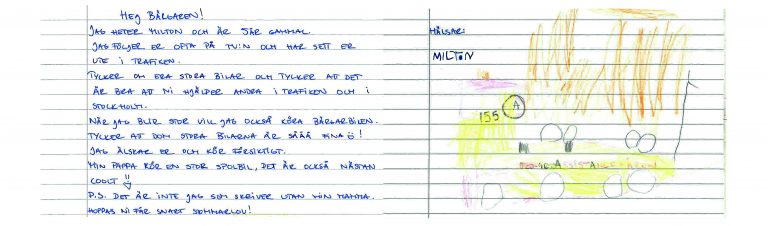 HEJ BÄRGAREN!
JAG HETER MILTON OCH ÄR 5ÅR GAMMAL.
JAG FÖLJER ER OFTA PÅ TV:N OCH HAR SETT ER
UTE I TRAFIKEN.
TYCKER OM ERA STORA BILAR OCH TYCKER ATT DET
ÄR BRA ATT NI HJÄLPER ANDRA I TRAFIKEN OCH I
STOCKHOLM.
NÄR JAG BLIR STOR VILL JAG OCKSÅ KÖRA BÄRGARBILEN.
TYCKER ATT DOM STORA BILARNA ÄR SÅÅÅ FINA!
JAG ÄLSKAR ER OCH KÖR FÖRSIKTIGT.
MIN PAPPA KÖR EN STOR SPOLBIL, DET ÄR OCKSÅ NÄSTAN
COOLT
P.S. DET ÄR INTE JAG SOM SKRIVER UTAN MIN MAMMA.
HOPPAS NI FÅR SNART SOMMARLOV!
HÄLSAR:
MILTON
155 A